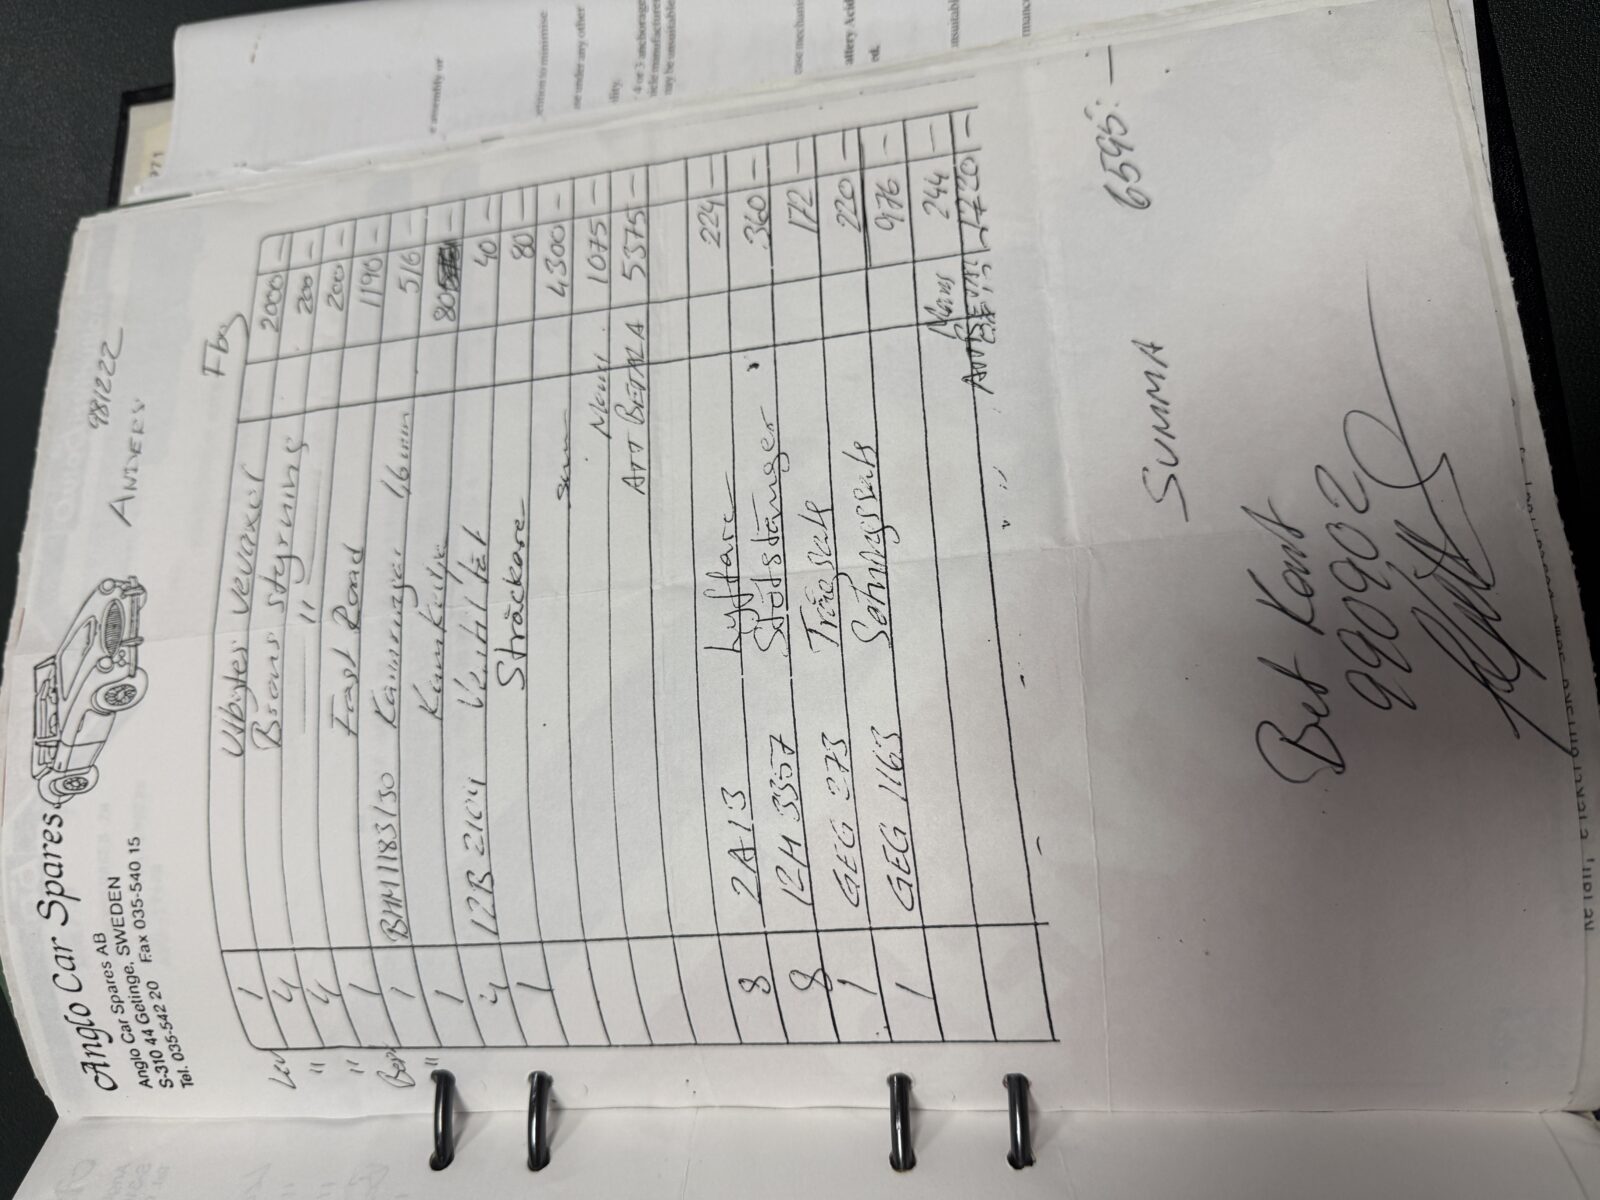 Anglo Car Spares
Anglo Car Spares AB
Anglo Car Spares, SWEDEN
S-310 44 Getinge.
Tel. 035-542 20 Fax 035-540 15
981222
ANDERS
Fbg
1 Utbytes vevaxel 2000 —
Lev 4 styrning 200 —
" 4 — " — 200 —
" 1 Fast Rond 1190 —
1 BHM1183130 46mm 516 —
" 1 Kamkedja 80 —
4 12B 2104 Ventil tät 40 —
1 Sträckare 80 —
Sum 4300 —
Moms 1075 —
ATT BETALA 5375 —
8 2A13 Lyftare 224 —
8 12H 3357 Stötstänger 360 —
1 GEG 273 Trågsats 172 —
1 GEG 1163 Sotningssats 220 —
976 —
Moms 244 —
1220 —
SUMMA 6595:—
Bet Kont
990902